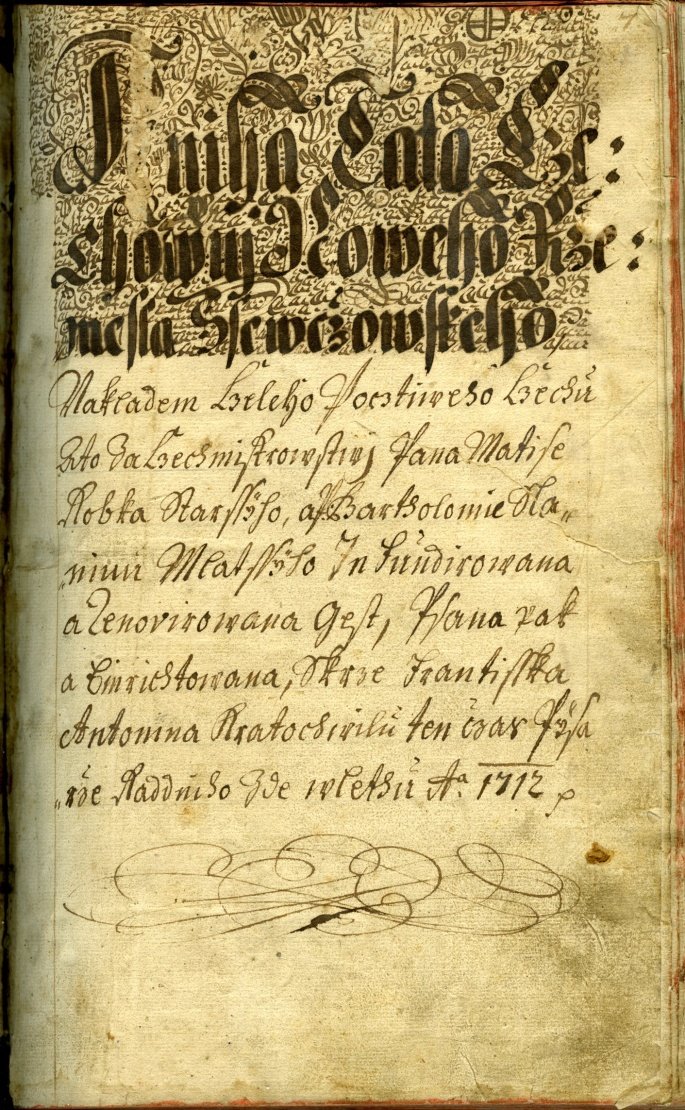 Kniha Tato Ce:
chownj Noweho Rze:
mesla Ssewczowskeho
Nakladem Czeleho Pocztiweho Czechu
a to Za Czechmistrowstwj Pana Matise
Robka Starssyho, a Bartholomie Sla„
„nimi Mlatssyho In Fundirowana
a Renovirowana Gest, Psana pak
a Einrichtowana, Skrze Frantisska
Antonina Kratochwilu ten czas Pysa
„rze Raddniho Zde wlethu Aº 1712